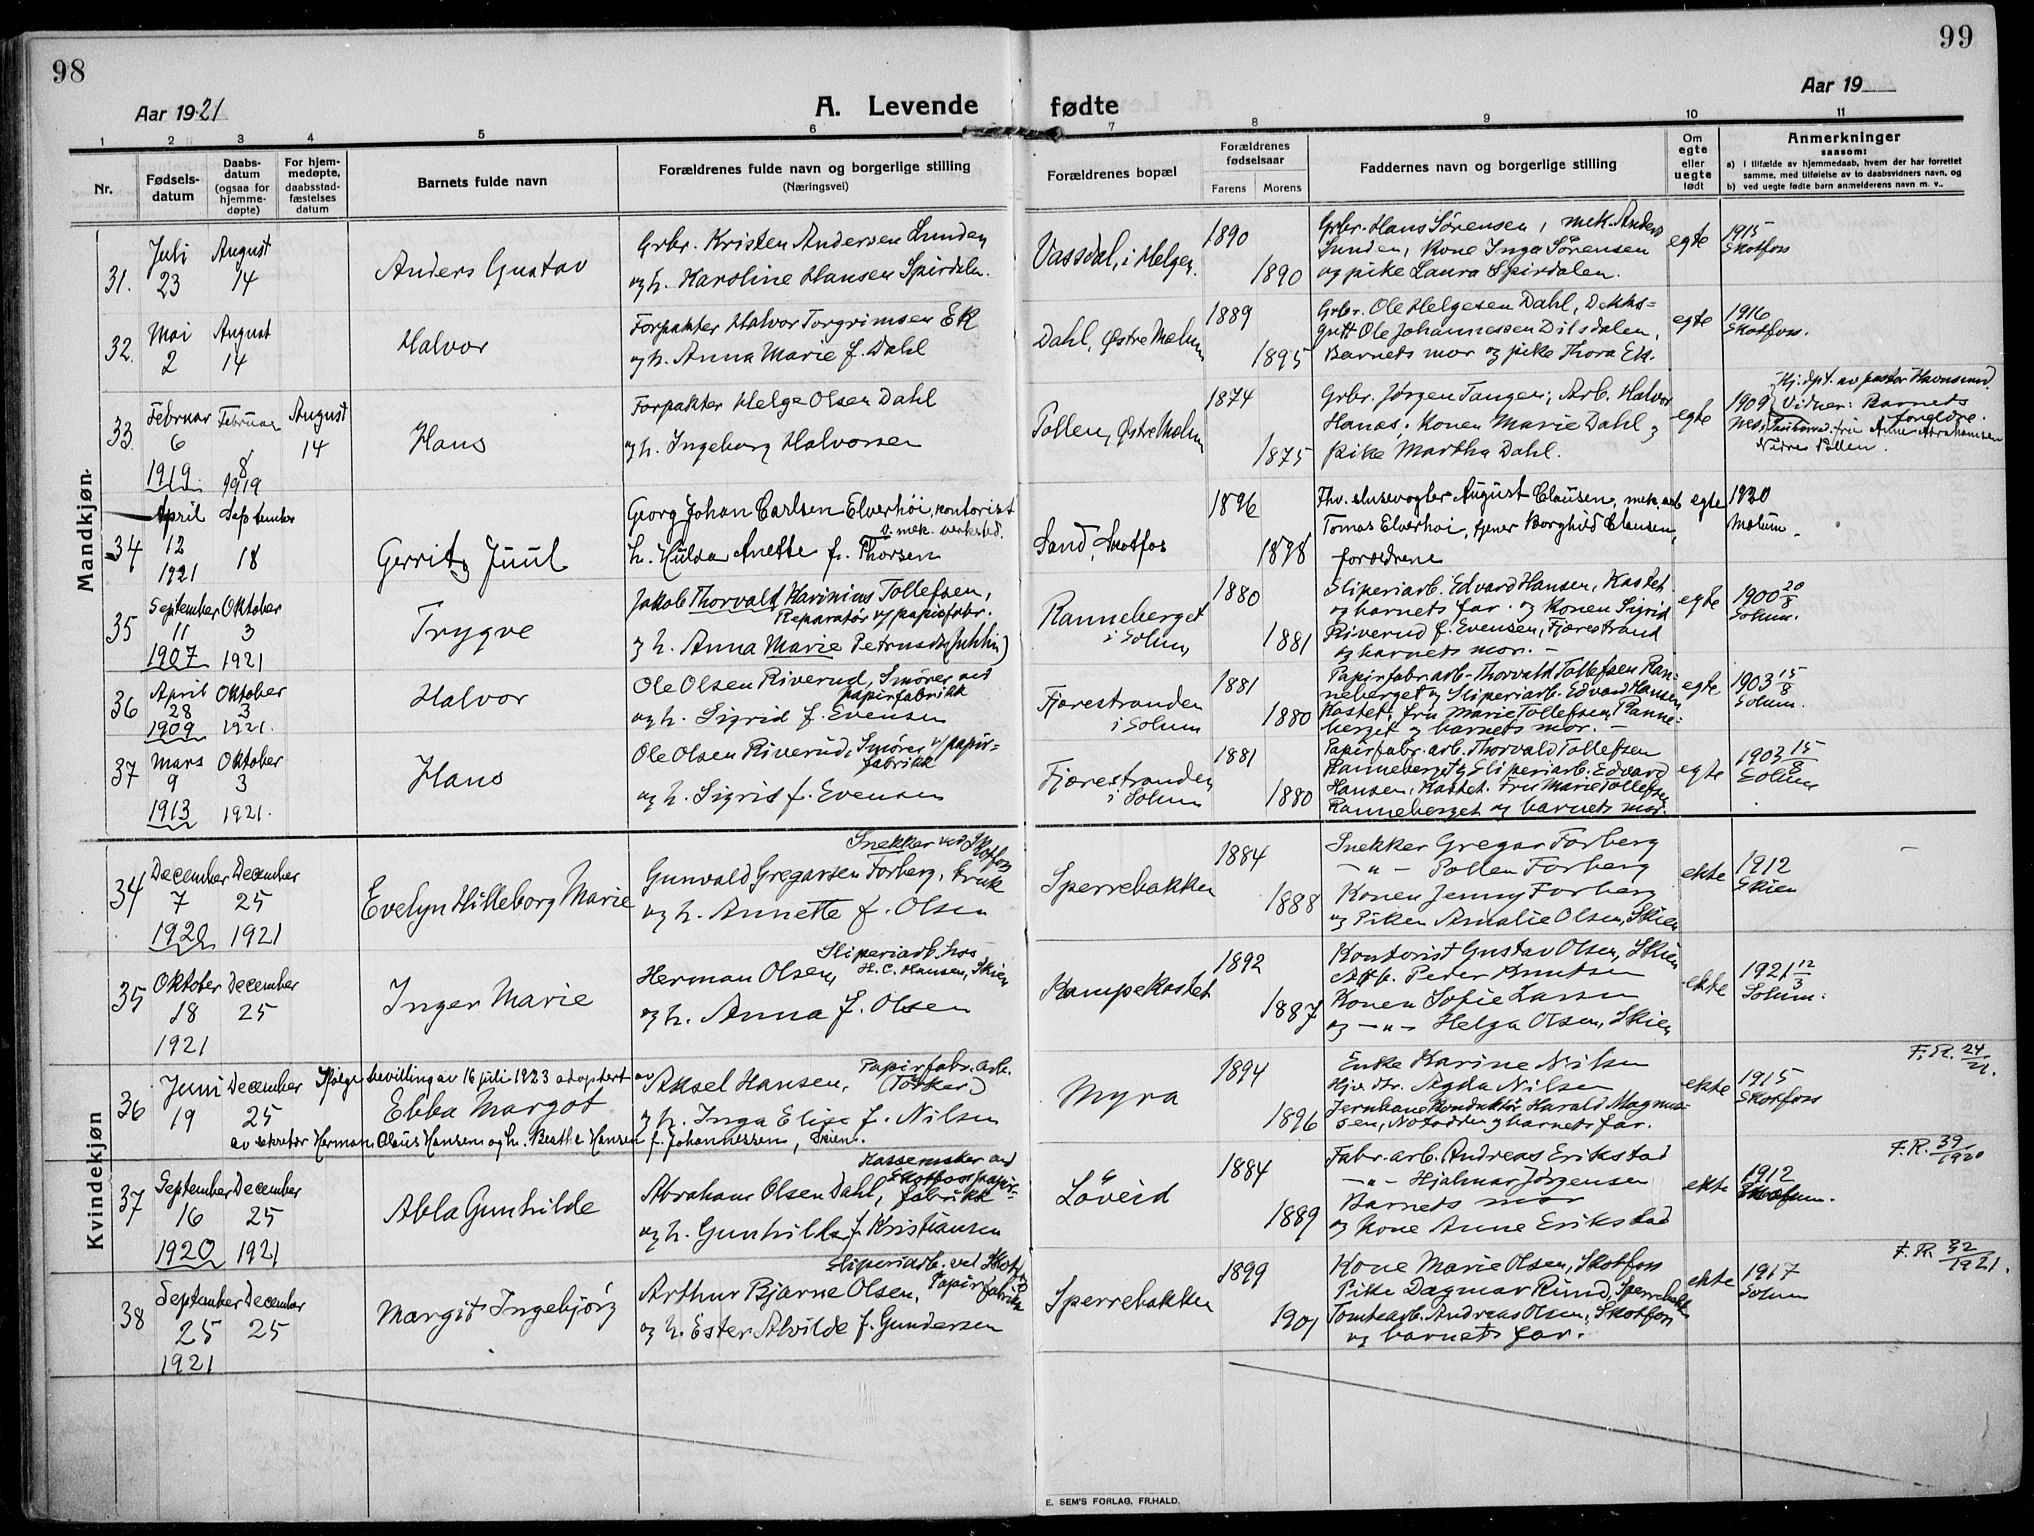 98
99
Aar 1921
A. Levende fødte
Aar 19
1 2 3 4 5 6 7 8 9 10 11
Nr.
Fødsels-
datum
Daabs-
datum
(ogsaa for
hjemme-
døpte)
For hjem-
medøpte,
daabsstad-
fæstelses
datum
Barnets fulde navn
Forældrenes fulde navn og borgerlige stilling
(Næringsvei)
Forældrenes bopæl
Forældrenes
fødselsaar
Farens Morens
Faddernes navn og borgerlige stilling
Om
egte
eller
uegte
født
Anmerkninger
saasom:
a) i tilfælde av hjemmedaab, hvem der har forrettet
samme, med tilføielse av to daabsvidners navn, og
b) ved uegte fødte barn anmelderens navn m. v..
Mandkjøn.
31. Juli 23 August 14
Anders Gustav
Grbr. Kristen Andersen Lunden
og h. Karoline Hansen Spirdalen.
Vassdal, i Helgen.
1890
1890
Grbr. Hans Sørensen, mek. Anders
Lunden, Kone Inga Sørensen
og pike Laura Spirdalen.
egte
1915
Skotfoss
32. Mai 2 August 14
Halvor
Forpakter Halvor Torgrimsen Ek
og h. Anna Marie f. Dahl
Dahl, Østre Melum
1889
1895
Grbr. Ole Helgesen Dahl, Dekks=
gutt Ole Johannessen Dilsdalen,
Barnets mor og pike Thora Ek.
egte
1916
Skotfoss.
33. Februar 6 1919 Februar 8 1919 August 14
Hans
Forpakter Helge Olsen Dahl
og h. Ingeborg Halvorsen
Tollen, Østre Melum
1874
1875
Grbr. Jørgen Tangen, Arb. Halvor
Hanas, Konen Marie Dahl og
pike Martha Dahl.
egte
1909
Hj. dpt. av pastor Havnsund
Vidner: Barnets
foreldre.
fru Anne Abrahamsen
Nedre Tollen.
34 April 12 1921 September 18
Gerritz Juul
Georg Johan Carlsen Elverhøi, kontorist
v. mek. verksted.
h. Hulda Anette f. Thorsen
Sand, Skotfos
1896
1898
Fhv. slusevogter August Clausen, mek. arb
Tomas Elverhøi, tjener Borghild Clausen,
forældrene
egte
1920
Melum.
35 September 11 1907 Oktober 3 1921
Trygve
Jakob Thorvald Marinius Tollefsen,
Reparatør v/ papirfabr.
og h. Anna Marie Petrusdtr
Ranneberget
i Solum,
1880
1881
Sliperiarb. Edvard Hansen, Kastet
og barnets far. og konen Sigrid
Riverud f. Evensen, Fjærestrand
og barnets mor. –
egte
1900 20/8
Solum.
36 April 28 1909 Oktober 3 1921.
Halvor
Ole Olsen Riverud, Smører ved
papirfabrikk
og h. Sigrid f. Evensen
Fjærestranden
i Solum
1881
1880
Papirfabr. arb. Thorvald Tollefsen Ran-
neberget og Sliperiarb. Edvard Hansen
Kastet. fru Marie Tollefsen, Ranne-
berget og barnets mor. –
egte
1903 15/8
Solum.
37 Mars 9 1913 Oktober 3 1921.
Hans
Ole Olsen Riverud, Smører v/ papir=
fabrikk
og h. Sigrid f. Evensen
Fjærestranden
i Solum
1881
1880
Papirfabr. arb. Thorvald Tollefsen
Ranneberget og Sliperiarb. Edvard
Hansen, Kastet. Fru Marie Tollefsen
Ranneberget og barnets mor.
egte
1903 15/8
Solum
Kvindekjøn
34 December 7 1920 December 25 1921
Evelyn Hilleborg Marie
Snekker ved Skotfoss
Gunvald Gregarsen Forberg, bruk
og h. Annette f. Olsen
Sperrebakken
1884
1888
Snekker Gregar Forberg
–"– Pollen Forberg
Konen Jenny Forberg
og Piken Amalie Olsen, Skien
ekte
1912
Skien
35 Oktober 18 1921 December 25
Inger Marie
Sliperiarb. hos
Herman Olsen, H. C. Hansen, Skien
og h. Anna f. Olsen
Kampekastet
1892
1887
Kontorist Gustav Olsen, Skien
Arb. Peder Knutsen
Konen Sofie Larsen
og –"– Helga Olsen, Skien
ekte
1921 12/3
Solum.
36 Juni 19 December 25
Ifølge bevilling av 16 juli 1923 adoptert av
Ebba Margot
av sekretær Herman Claus Hansen og h. Beathe Hansen f. Johannessen, Skien.
Aksel Hansen, Papirfabr. arb.
(Tørker)
og h. Inga Elise f. Nilsen
Myra
1894
1896
Enke Karine Nilsen
Hjv. dtr. Agda Nilsen
Jernbanekonduktør Harald Magnus-
sen, Notodden og barnets far.
ekte
1915
Skotfoss
F. R. 24/21.
37 September 16 1920 December 25 1921
Abla Gunhilde
Kassemaker ved
Abraham Olsen Dahl, Skotfoss papir-
fabrikk
og h. Gunhilde f. Kristiansen
Løveid
1884
1889
Fabr. arb. Andreas Erikstad
–"– Hjalmar Jørgensen
Barnets mor
og Kone Anne Erikstad
ekte
1912
F. R. 39/1920
38 September 25 1921 December 25
Margit Ingebjørg
Sliperiarb. ved Skotfoss
Arthur Bjarne Olsen, Papirfabrikk
og h. Ester Alvilde f. Gundersen
Sperrebakken
1899
1901
Kone Marie Olsen, Skotfoss
Pike Dagmar Rund, Sperrebakken
Tomtearb. Andreas Olsen, Skotfoss
og barnets far.
ekte
1917
Solum
F. R. 32/1921.
E. SEM'S FORLAG, FR.HALD.